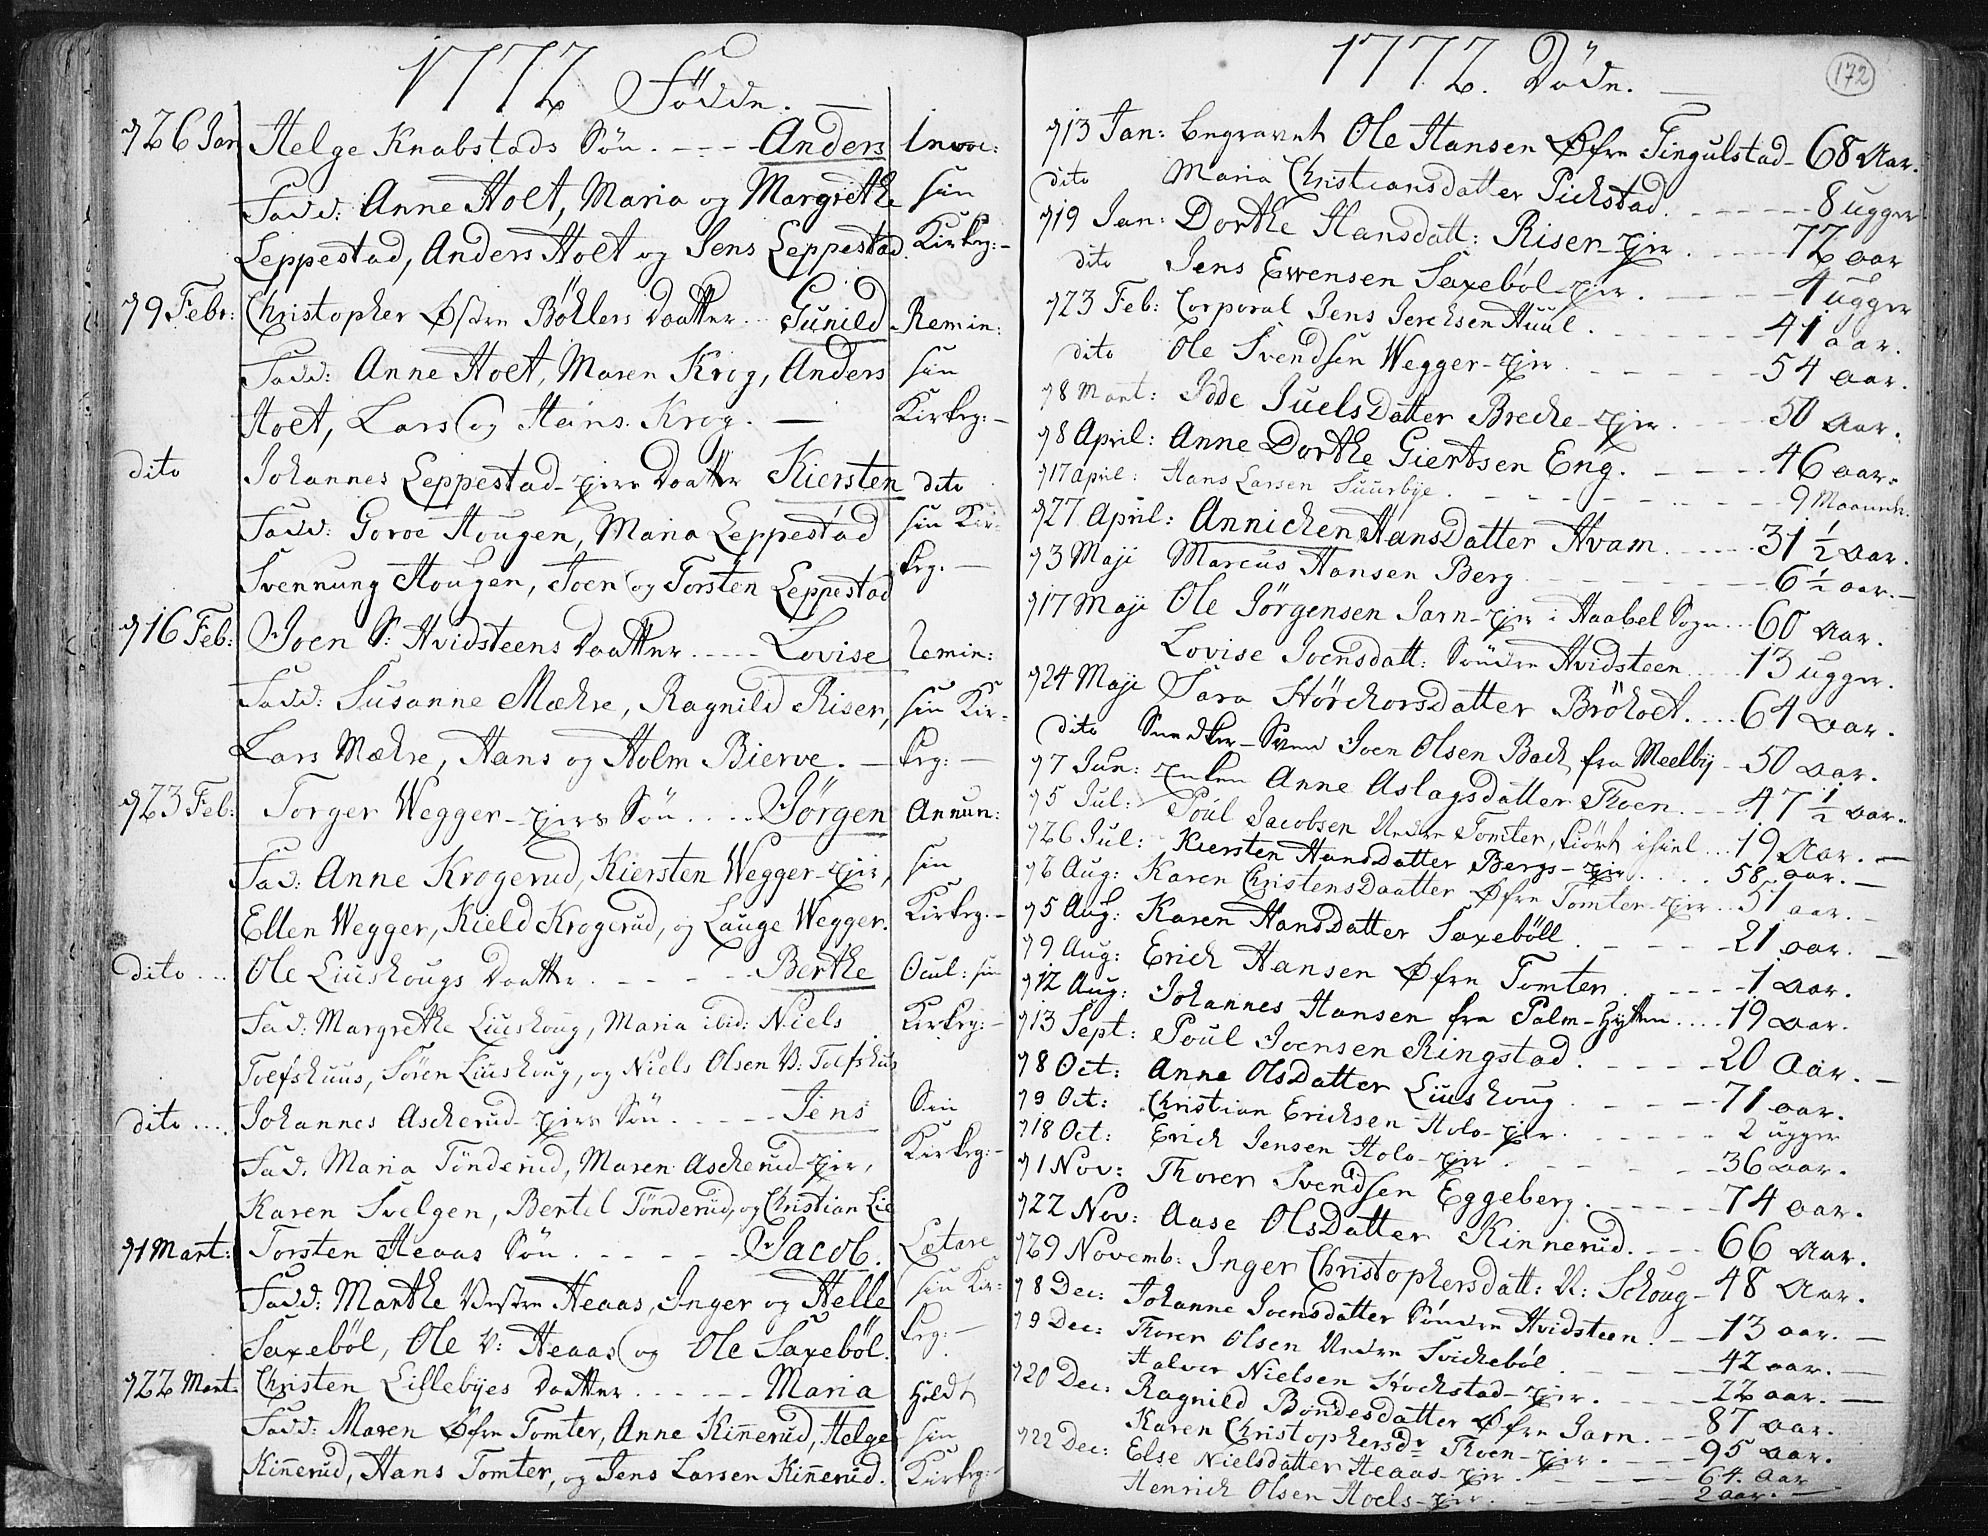 1772 Födde.
926 Jan Helge Knabstads Sön. Anders Invoc:
Fadd: Anne Holt, Maria og Margrethe sin
Leppestad, Anders Holt og Jens Leppestad. Kirkeg:
79 Febr: Christopher Østre Böhlers Daatter Gunild Remin:
Fadd: Anne Holt, Maren Krog, Anders sin
Holt, Lars og Hans Krog. Kirkeg:
dito Johannes Leppestad-ejers Daatter Kiersten dito
Fadd: Goroe Hougen, Maria Leppestad sin Kir-
Svennung Hougen, Joen og Torsten Leppestad keg.
716 Feb: Joen S: Hvidsteens Daatter Lovise Remin:
Fadd: Susanne Mæhre, Ragnild Riser, sin Kir-
Lars Mæhre, Hans og Holm Bierve. keg:
723 Feb: Torger Wegger-ejers Sön Jörgen Annun:
Fad: Anne Krogerud, Kiersten Wegger-ejer, sin
Ellen Wegger, Kield Krogerud, og Lauge Wegger. Kirkeg.
dito Ole Liuskougs Daatter Berthe Ocul: sin
Fad: Margrethe Liuskoug, Maria ibid: Niels Kirkeg:
Toefshuus, Sören Liuskoug, og Niels Olsen V: Tolfshus
dito Johannes Ascherud-ejers Sön Jens Sin
Fad. Maria Tönderud, Maren Ascherud-ejer, Kirkeg:
Karen Svelgen, Bertel Tönderud, og Christian Lie
71 Mart: Torsten Heaas Sön Jacob. Lætare
Fadd: Marthe Vestre Heaas, Inger og Helle sin Kir-
Saxeböl, Ole V: Heaas og Ole Saxeböl. keg:
722 Mart: Christen Lillebyes Daatter Maria holdt
Fadd: Maren Øfre Tomter, Anne Kinnerud, Helge sin
Kinnerud, Hans Tomter, og Jens Larsen Kinnerud. Kirkeg:
1772. Döde.
172
713 Jan: begravet Ole Hansen Øfre Tingulstad 68 Aar.
dito Maria Christiansdatter Pichstad 8 ugger
719 Jan: Dorthe Hansdatt: Riser-ejer 72 aar
dito Jens Evensen Saxeböl-ejer. 4 ugger
723 Feb: Corporal Jens Jerchsen Huul. 41 aar.
dito Ole Svendsen Wegger-ejer 54 aar.
78 Mart: Idde Juels Datter Breche-ejer 50 Aar.
78 April: Anne Dorthe Giertsen Eng. 46 aar.
717 april: Hans Larsen Suurbye. 9 Maaneder.
727 April: Annichen HansDatter Hvam 31 1/2 aar.
73 Maji Marcus Hansen Berg 6 1/2 aar.
717 Maji Ole Jörgensen Jarn-ejer i Haabel Sogn 60 Aar.
Lovise Joensdatt: Söndre Hvidsteen 13 ugger.
724 Maji Sara HörchorsDatter Bröholt. 64 aar.
dito Snedker-Svend Joen Olsen Bach fra Meelby 50 aar.
77 Jun: Enken Anne Aslagsdatter Thoen 47 1/2 aar.
75 Jul: Poul Jacobsen Nedre Tomter, kiört ihiel 19 Aar.
726 Jul: Kiersten HansDatter Bergs-ejer 58 aar.
72 Aug: Karen ChristensDaatter Øfre Tomter-ejer 51 aar.
75 Aug: Karen HansDatter Saxeböll 21 aar.
79 Aug: Erich Hansen Øfre Tomter 1 aar.
712 Aug: Johannes Hansen fra Palm-hytten 19 aar.
713 Sept: Poul Joensen Ringstad 20 Aar.
78 Oct: Anne OlsDatter Liuskoug 71 aar.
79 Oct: Christian Erichsen Holo-ejer 2 ugger
718 Oct: Erich Jensen Holo-ejer 36 aar.
71 Nov: Thorer Svendsen Eggeberg 74 aar.
722 Nov: Aase OlsDatter Kinnerud. 66 Aar.
729 Novemb: Inger Christophersdatt: N: Schoug 48 Aar.
78 Dec: Johanne Joensdatter Söndre Hvidsteen 13 aar.
79 Dec: Thorer Olsen Nedre Svicheböl 42 aar.
Halvor Nielsen Stochstad-ejer 22 aar.
720 Dec: Ragnild Bondesdatter Øfre Jarn. 87 aar.
Karen Christophersdr Thoen-ejer 95 aar.
722 Dec: Else Nielsdatter Heaas-ejer 64. aar
Henrich Olsen Hoels-ejer 2 aar.